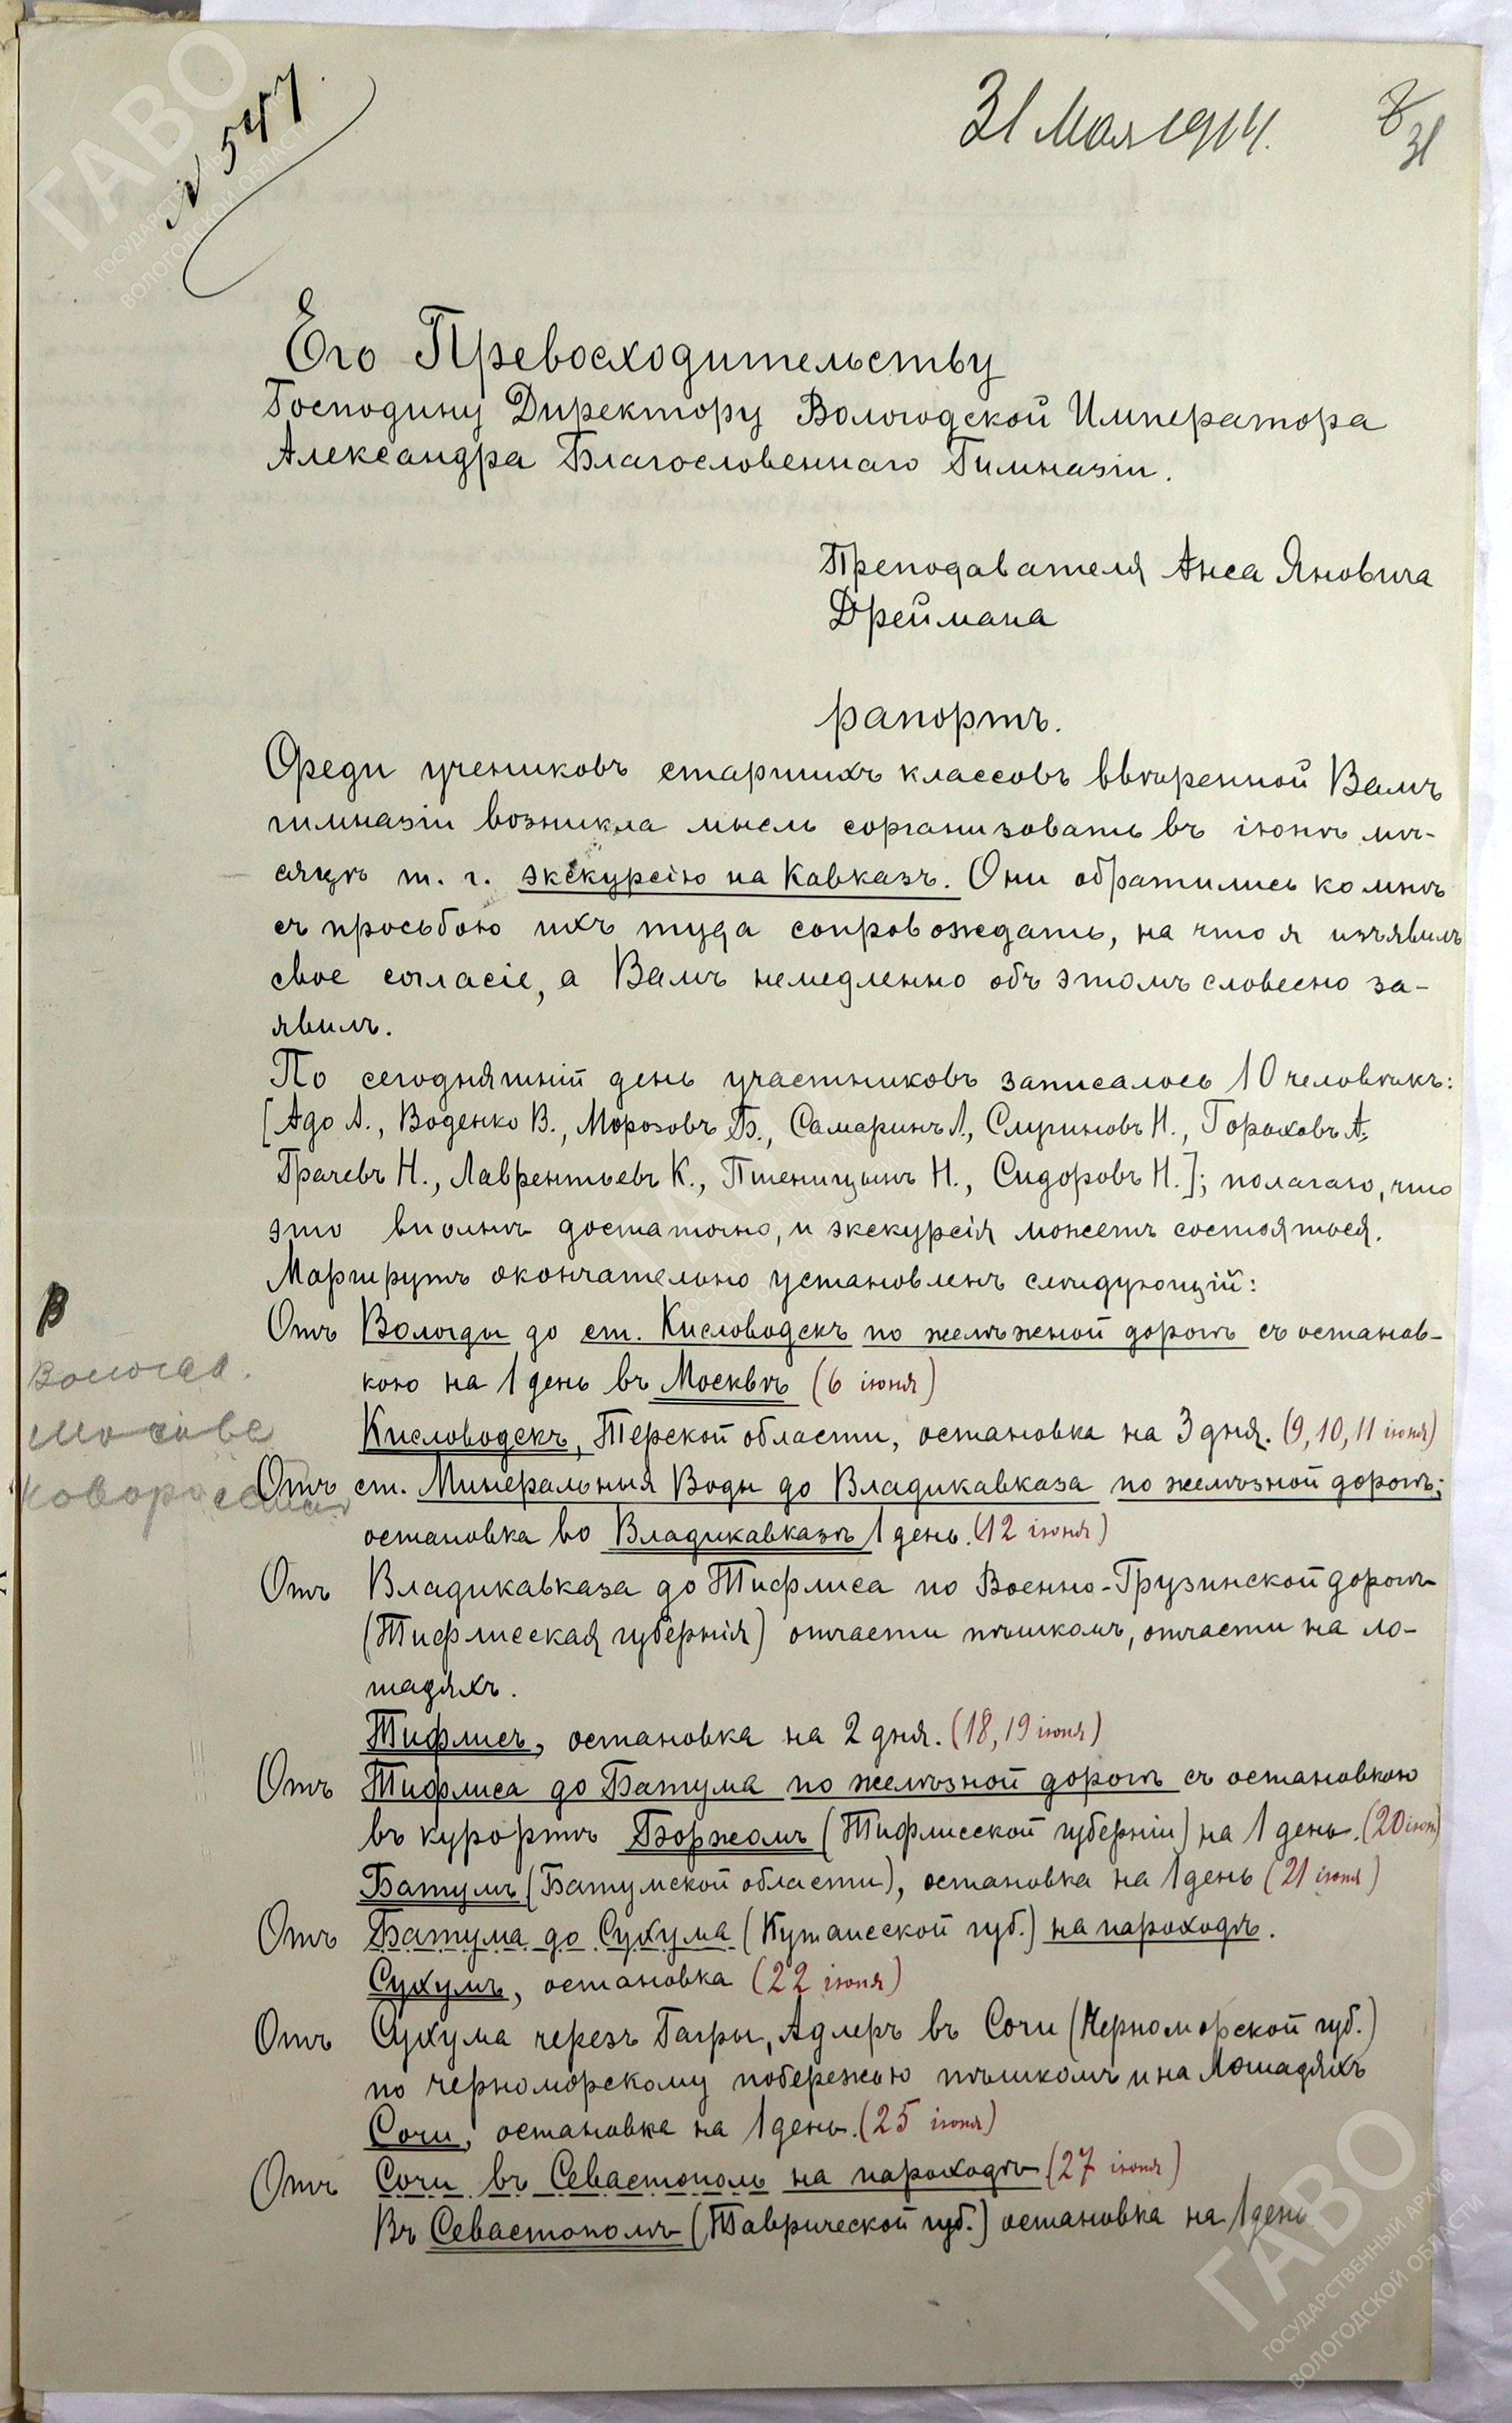 № 547
31 Мая 1914.
31
Его Превосходительству
Господину Директору Вологодской Императора
Александра Благословеннаго Гимназіи.
Преподавателя Анса Яновича
Дреймана
рапортъ.
Среди учениковъ старшихъ классовъ ввѣренной Вамъ
гимназіи возникла мысль сорганизовать въ іюнѣ мѣ-
сяцѣ т. г. экскурсію на Кавказъ. Они обратились ко мнѣ
съ просьбою ихъ туда сопровождать, на что я изъявилъ
свое согласіе, а Вамъ немедленно объ этомъ словесно за-
явилъ.
По сегодняшній день участниковъ записалось 10 человѣкъ:
[Адо А., Воденко В., Морозовъ Б., Самаринъ Л., Слугиновъ Н., Гороховъ А.,
Грачевъ Н., Лаврентьевъ К., Пшеницынъ Н., Сидоровъ Н.]; полагаю, что
это вполнѣ достаточно, и экскурсія можетъ состояться.
Маршрутъ окончательно установленъ слѣдующій:
Отъ Вологды до ст. Кисловодскъ по желѣзной дорогѣ съ останов-
кою на 1 день въ Москвѣ (6 іюня)
Кисловодскъ, Терской области, остановка на 3 дня. (9, 10, 11 іюня)
Отъ ст. Минеральныя Воды до Владикавказа по желѣзной дорогѣ;
остановка во Владикавказѣ 1 день. (12 іюня)
Отъ Владикавказа до Тифлиса по Военно-Грузинской дорогѣ
(Тифлисская губернія) отчасти пѣшкомъ, отчасти на ло-
шадяхъ.
Тифлисъ, остановка на 2 дня. (18, 19 іюня)
Отъ Тифлиса до Батума по желѣзной дорогѣ съ остановкою
въ курортѣ Боржомъ (Тифлисской губерніи) на 1 день. (20 іюня)
Батумъ (Батумской области), остановка на 1 день (21 іюня)
Отъ Батума до Сухума (Кутаисской губ.) на пароходѣ.
Сухумъ, остановка (22 іюня)
Отъ Сухума черезъ Гагры, Адлеръ въ Сочи (Черноморской губ.)
по черноморскому побережью пѣшкомъ и на лошадяхъ
Сочи, остановка на 1 день. (25 іюня)
Отъ Сочи въ Севастополь на пароходѣ (27 іюня)
Въ Севастополѣ (Таврической губ.) остановка на 1 день
В
Вологда.
ГАВО
ГОСУДАРСТВЕННЫЙ АРХИВ
ВОЛОГОДСКОЙ ОБЛАСТИ